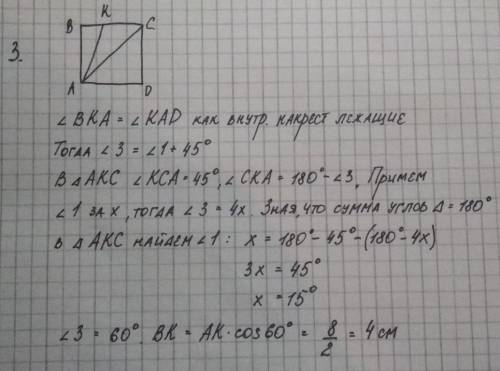 3.
B K C
A D
∠ BKA = ∠ KAD как внутр. накрест лежащие
Тогда ∠ 3 = ∠ 1 + 45°
В △ АКС ∠ КСА = 45°, ∠ СКА = 180° - ∠ 3. Примем
∠ 1 за х, тогда ∠ 3 = 4х. Зная, что сумма углов △ = 180°
в △ АКС найдем ∠ 1 : х = 180° - 45° - (180° - 4х)
3х = 45°
х = 15°
∠ 3 = 60°. ВК = АК · cos 60° = 8/2 = 4 см